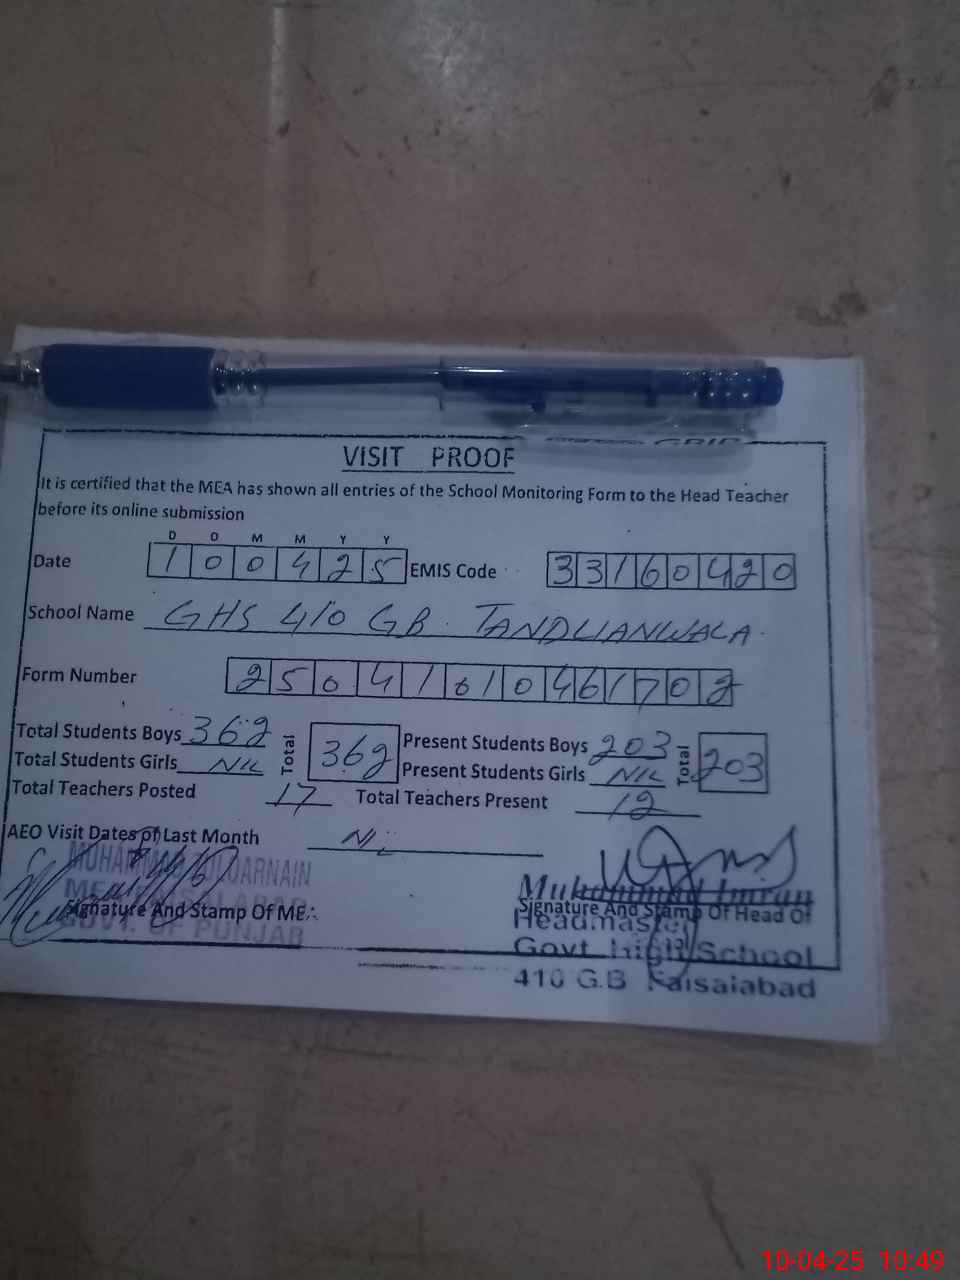 GRIP
VISIT PROOF
It is certified that the MEA has shown all entries of the School Monitoring Form to the Head Teacher
before its online submission
D D M M Y Y
Date 1 0 0 4 2 5 EMIS Code 3 3 1 6 0 4 2 0
School Name GHS 410 GB. TANDLIANWALA.
Form Number 2 5 0 4 1 0 1 0 4 6 1 7 0 2
Total Students Boys 362 Total 362 Present Students Boys 203 Total 203
Total Students Girls NIL Present Students Girls NIL
Total Teachers Posted 17 Total Teachers Present 12
AEO Visit Dates of Last Month NIL
MUHAMMAD ZULQARNAIN
MEA FAISALABAD
Signature And Stamp Of MEA
GOVT. OF PUNJAB
Muhammad Imran
Signature And Stamp Of Head Of
Headmaster
Govt High School
410 G.B Faisalabad
10-04-25 10:49